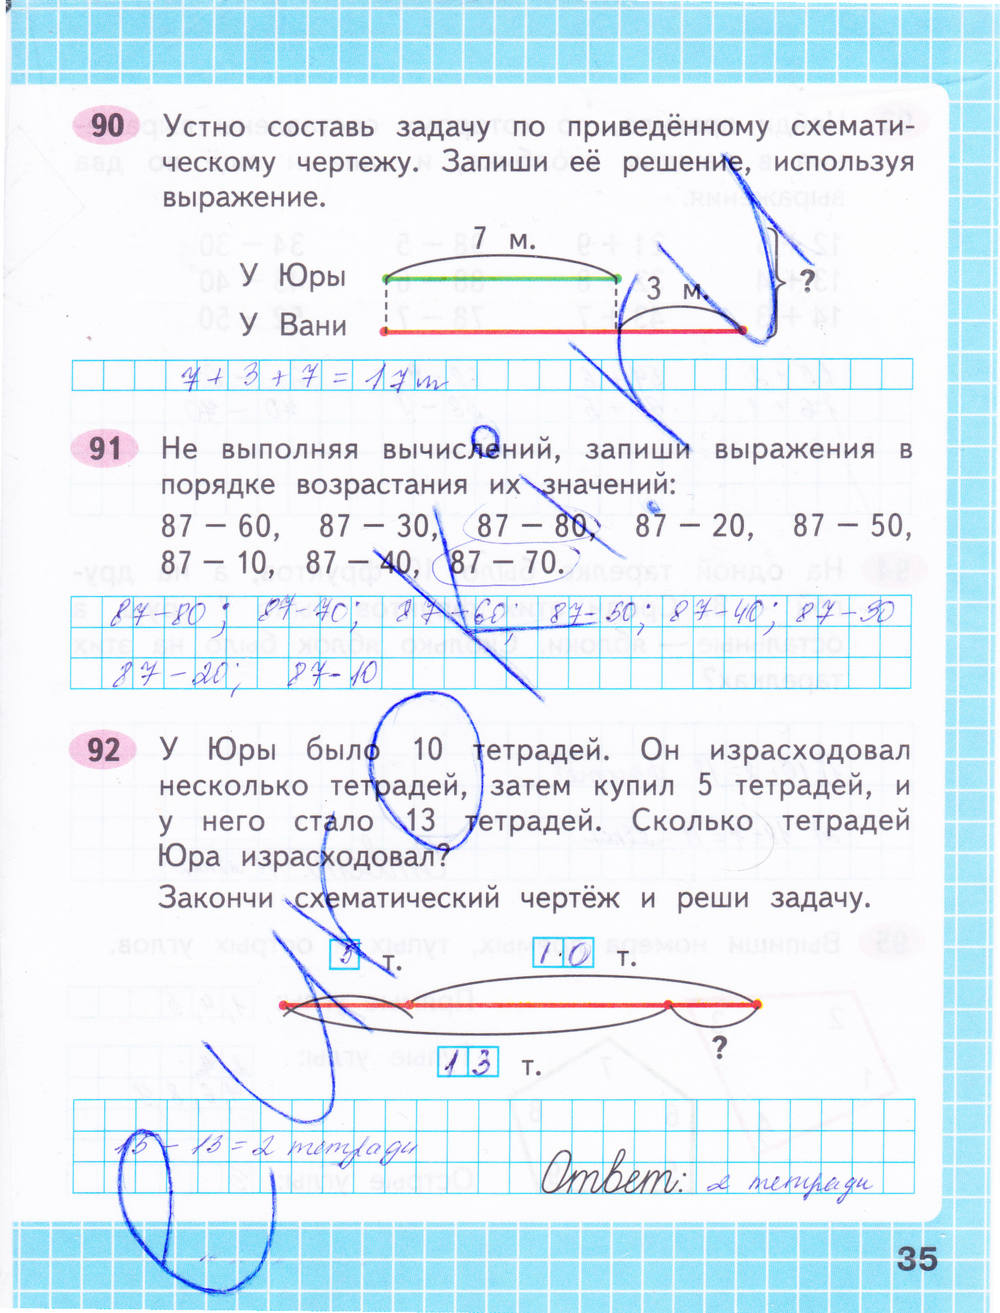 90 Устно составь задачу по приведённому схемати-
ческому чертежу. Запиши её решение, используя
выражение.
7 м.
У Юры
3 м.
?
У Вани
7+3+7=17 т
91 Не выполняя вычислений, запиши выражения в
порядке возрастания их значений:
87 – 60, 87 – 30, 87 – 80, 87 – 20, 87 – 50,
87 – 10, 87 – 40, 87 – 70.
87-80; 87-70; 87-60; 87-50; 87-40; 87-30
87-20; 87-10
92 У Юры было 10 тетрадей. Он израсходовал
несколько тетрадей, затем купил 5 тетрадей, и
у него стало 13 тетрадей. Сколько тетрадей
Юра израсходовал?
Закончи схематический чертёж и реши задачу.
5 т. 10 т.
?
13 т.
15-13=2 тетради
Ответ: 2 тетради
35